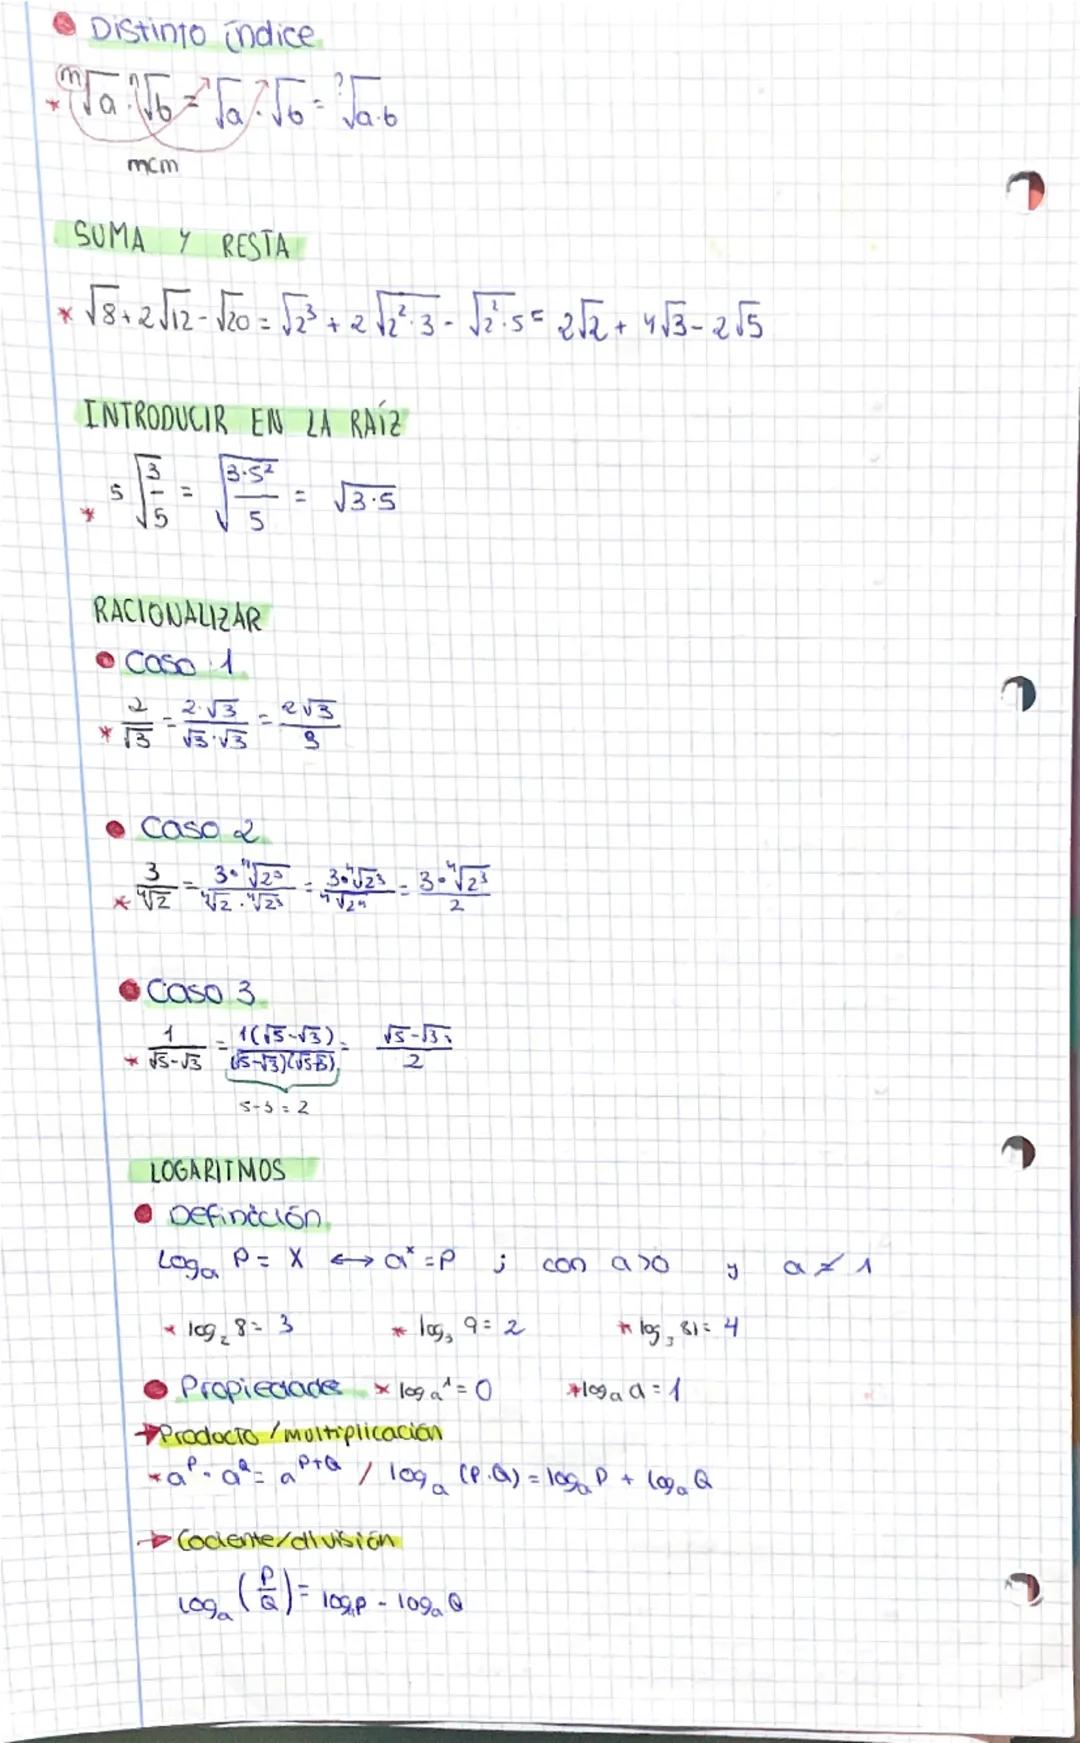 Distinto índice
* ᵐ√a · ⁿ√b = √a · √b = ?√a·b
mcm
SUMA Y RESTA
* √8 + 2√12 - √20 = √2³ + 2√2²·3 - √2²·5 = 2√2 + 4√3 - 2√5
INTRODUCIR EN LA RAÍZ
* 5√3/5 = √3·5²/5 = √3·5
RACIONALIZAR
Caso 1
* 2/√3 = 2·√3/√3·√3 = 2√3/3
Caso 2
* 3/⁴√2 = 3·⁴√2³/⁴√2·⁴√2³ = 3·⁴√2³/⁴√2⁴ = 3·⁴√2³/2
Caso 3
* 1/√5-√3 = 1(√5-√3)/(√5-√3)(√5-√3) = √5-√3/2
5-3=2
LOGARITMOS
Definición
Logₐ P = X ↔ aˣ = P ; con a>0 y a ≠ 1
* log₂ 8 = 3 * log₃ 9 = 2 * log₃ 81 = 4
Propiedades * log a¹ = 0 * logₐ a = 1
→ Producto / multiplicación
* a^P · a^Q = a^P+Q / logₐ (P·Q) = logₐ P + logₐ Q
→ Cociente/división
Logₐ (P/Q) = logₐ P - logₐ Q